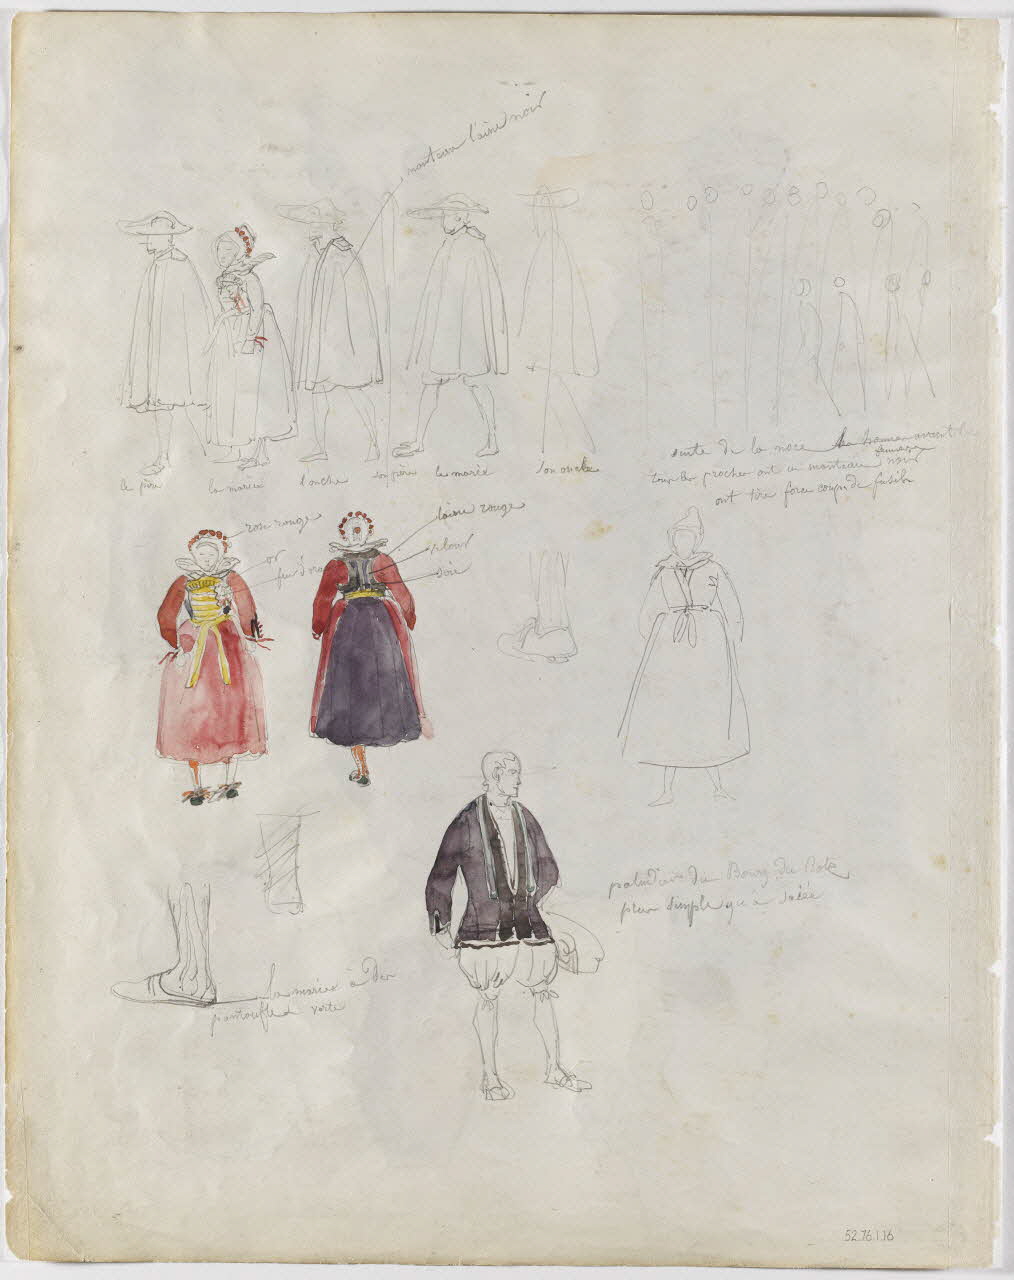 manteau laine noir
le père
la mariée
l'oncle
son père
le marié
son oncle
suite de la noce
tous les proches ont un manteau noir
ont tiré force coups de fusils
rose rouge
or
laine rouge
velour
soie
la mariée à des
pantoufles verte
paludier du Bourg de Batz
plus simple qu'à Saillé
52.76.1.16